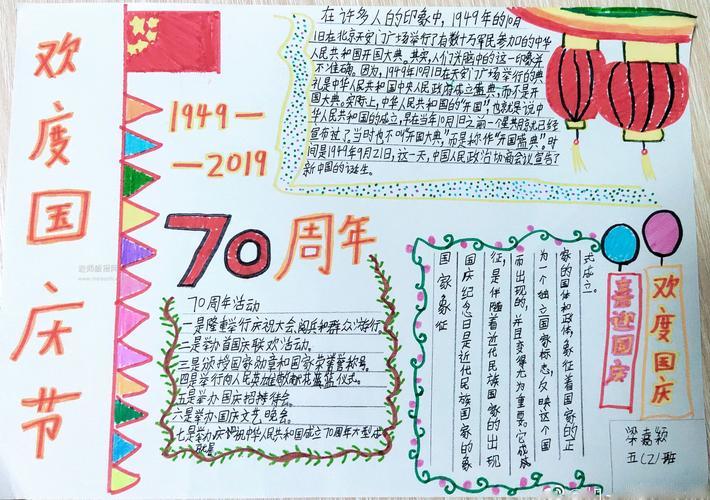 欢度国庆节
1949—
—2019
70周年
在许多人的印象中,1949年的10月
1日在北京天安门广场举行了有数十万军民参加的中华
人民共和国开国大典。其实,人们头脑中的这一印象并
不准确。因为,1949年10月1日在天安门广场举行的典
礼是中华人民共和国中央人民政府成立盛典,而不是开
国大典。实际上,中华人民共和国的“开国”,也就是说中
华人民共和国的成立,早在当年10月1日之前一个星期就已经
宣布过了。当时也不叫“开国大典”,而是称作“开国盛典”。时
间是1949年9月21日,这一天,中国人民政治协商会议宣告了
新中国的诞生。
70周年活动
一是隆重举行庆祝大会,阅兵和群众游行。
二是举办首国庆联欢活动。
三是颁授国家勋章和国家荣誉称号。
四是举行向人民英雄敬献花篮仪式。
五是举办国庆招待会。
六是举办国庆文艺晚会。
七是举办庆祝中华人民共和国成立70周年大型成
就展
国家象征
国庆纪念日是近代民族国家的象
征,是伴随着近代民族国家的出现
而出现的,并且变得尤为重要。它成为
为一个独立国家标志,反映这个国
家的国体和政体,象征着国家的正
式成立。
喜迎国庆
欢度国庆
梁嘉颖
五(2)班